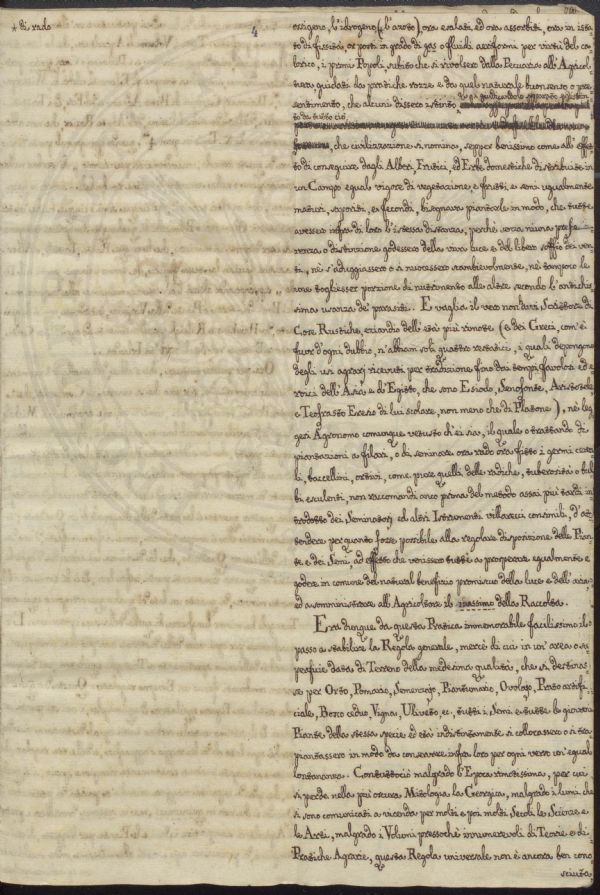 * di rado
4
ossigeno, l'idrogeno (l'azoto), ora esalati, ed ora assorbiti, ora in ista-
to di fissità, or posti in grado di gas o fluidi aeriformi per virtù del ca-
lorico, i primi Popoli, subito che si rivolsero dalla Pecuaria all'Agricol-
tura guidati da pratiche rozze e da quel naturale buon senso o pre-
sentimento, che alcuni dissero istinto,
to da tutto ciò,
che civilizzazione si nomina, sepper benissimo come all'effet-
to di conseguire dagli Alberi, Frutici, ed Erbe domestiche distribuite in
un Campo egual vigore di vegetazione, e frutti e semi ugualmente
maturi, saporiti, e fecondi, bisognava piantarle in modo, che tutte
avessero infra di loro l'istessa distanza, perchè senza niuna prefe-
renza o distinzione godessero della viva luce e del libero soffio dei ven-
ti, nè s'aduggiassero o si nuocessero scambievolmente, nè tampoco le
une togliesser porzione di nutrimento alle altre secondo l'antichis-
sima usanza de' parasiti. E vaglia il vero non havvi Scrittore di
Cose Rustiche, eziandio dell'età più rimote (e dei Greci, com'è
fuor d'ogni dubbio, n'abbiam soli quattro restatici, i quali depongono
degli usi agrarj ricevuti per tradizione fino dai tempi favolosi ed e-
roici dell'Asia e d'Egitto, che sono Esiodo, Senofonte, Aristotele,
e Teofrasto Eresio di lui scolare, non meno che di Platone), nè leg-
gesi Agronomo comunque vetusto ch'ei sia, il quale o trattando di
piantazioni a filari, o di seminare ora rado ora fitto i germi cerea-
li, baccellini, ortivi, come pure quelli delle radiche, tuberosità o bul-
bi esculenti, non raccomandi anco prima del metodo assai più tardi in-
trodotto dei Seminatorj ed altri Istrumenti villarecci consimili, d'at-
tendere per quanto fosse possibile alla regolare disposizione delle Pian-
te e dei Semi, ad effetto che venissero tutti a prosperare egualmente e
godere in comune del natural benefizio promiscuo della luce e dell'aria,
ed a somministrare all'Agricoltore il massimo della Raccolta.
Era dunque da questa Pratica immemorabile facilissimo il
passo a stabilire la Regola generale, mercè di cui in un'area o su-
perficie data di Terreno della medesima qualità, che si destinas-
se per Orto, Pomario, Semenzajo, Piantonario, Ovolajo, Prato artifi-
ciale, Bosco ceduo, Vigna, Uliveto, ec. tutti i Semi e tutte le giovani
Piante della stessa specie ed età indistintamente si collocassero o si tra-
piantassero in modo da conservare infra loro per ogni verso un'egual
lontananza. Contuttociò malgrado l'Epoca rimotissima, per cui
si perde nella più oscura Mitologia la Georgica, malgrado i lumi che
si sono comunicati a vicenda per molti e poi molti Secoli le Scienze e
le Arti, malgrado i Volumi pressochè innumerevoli di Teorie e di
Pratiche Agrarie, questa Regola universale non è ancora ben cono-
sciuta